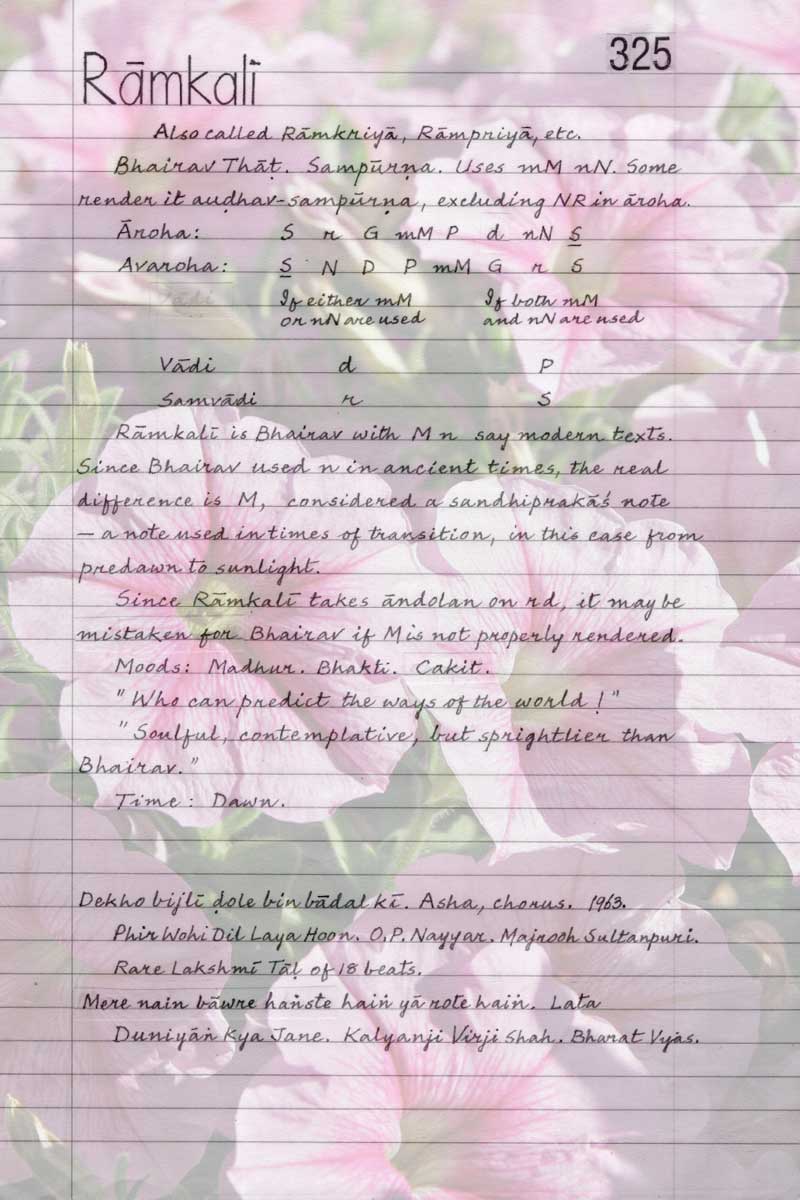 325
Rāmkalī
Also called Rāmkriyā, Rāmpriyā, etc.
Bhairav Thāṭ. Sampūrṇa. Uses mM nN. Some
render it auḍhav-sampūrṇa, excluding NR in āroha.
Āroha: S r G mM P d nN S
Avaroha: S N D P mM G r S
If either mM If both mM
or nN are used and nN are used
Vādi d P
Samvādi r S
Rāmkalī is Bhairav with M n say modern texts.
Since Bhairav used n in ancient times, the real
difference is M, considered a sandhiprakāś note
— a note used in times of transition, in this case from
predawn to sunlight.
Since Rāmkalī takes āndolan on rd, it may be
mistaken for Bhairav if M is not properly rendered.
Moods: Madhur. Bhakti. Cakit.
"Who can predict the ways of the world!"
"Soulful, contemplative, but sprightlier than
Bhairav."
Time: Dawn.
Dekho bijlī ḍole bin bādal kī. Asha, chorus. 1963.
Phir Wohi Dil Laya Hoon. O.P. Nayyar. Majrooh Sultanpuri.
Rare Lakshmī Tāl of 18 beats.
Mere nain bāwre haṅste haiṅ yā rote haiṅ. Lata
Duniyāṅ Kya Jane. Kalyanji Virji Shah. Bharat Vyas.